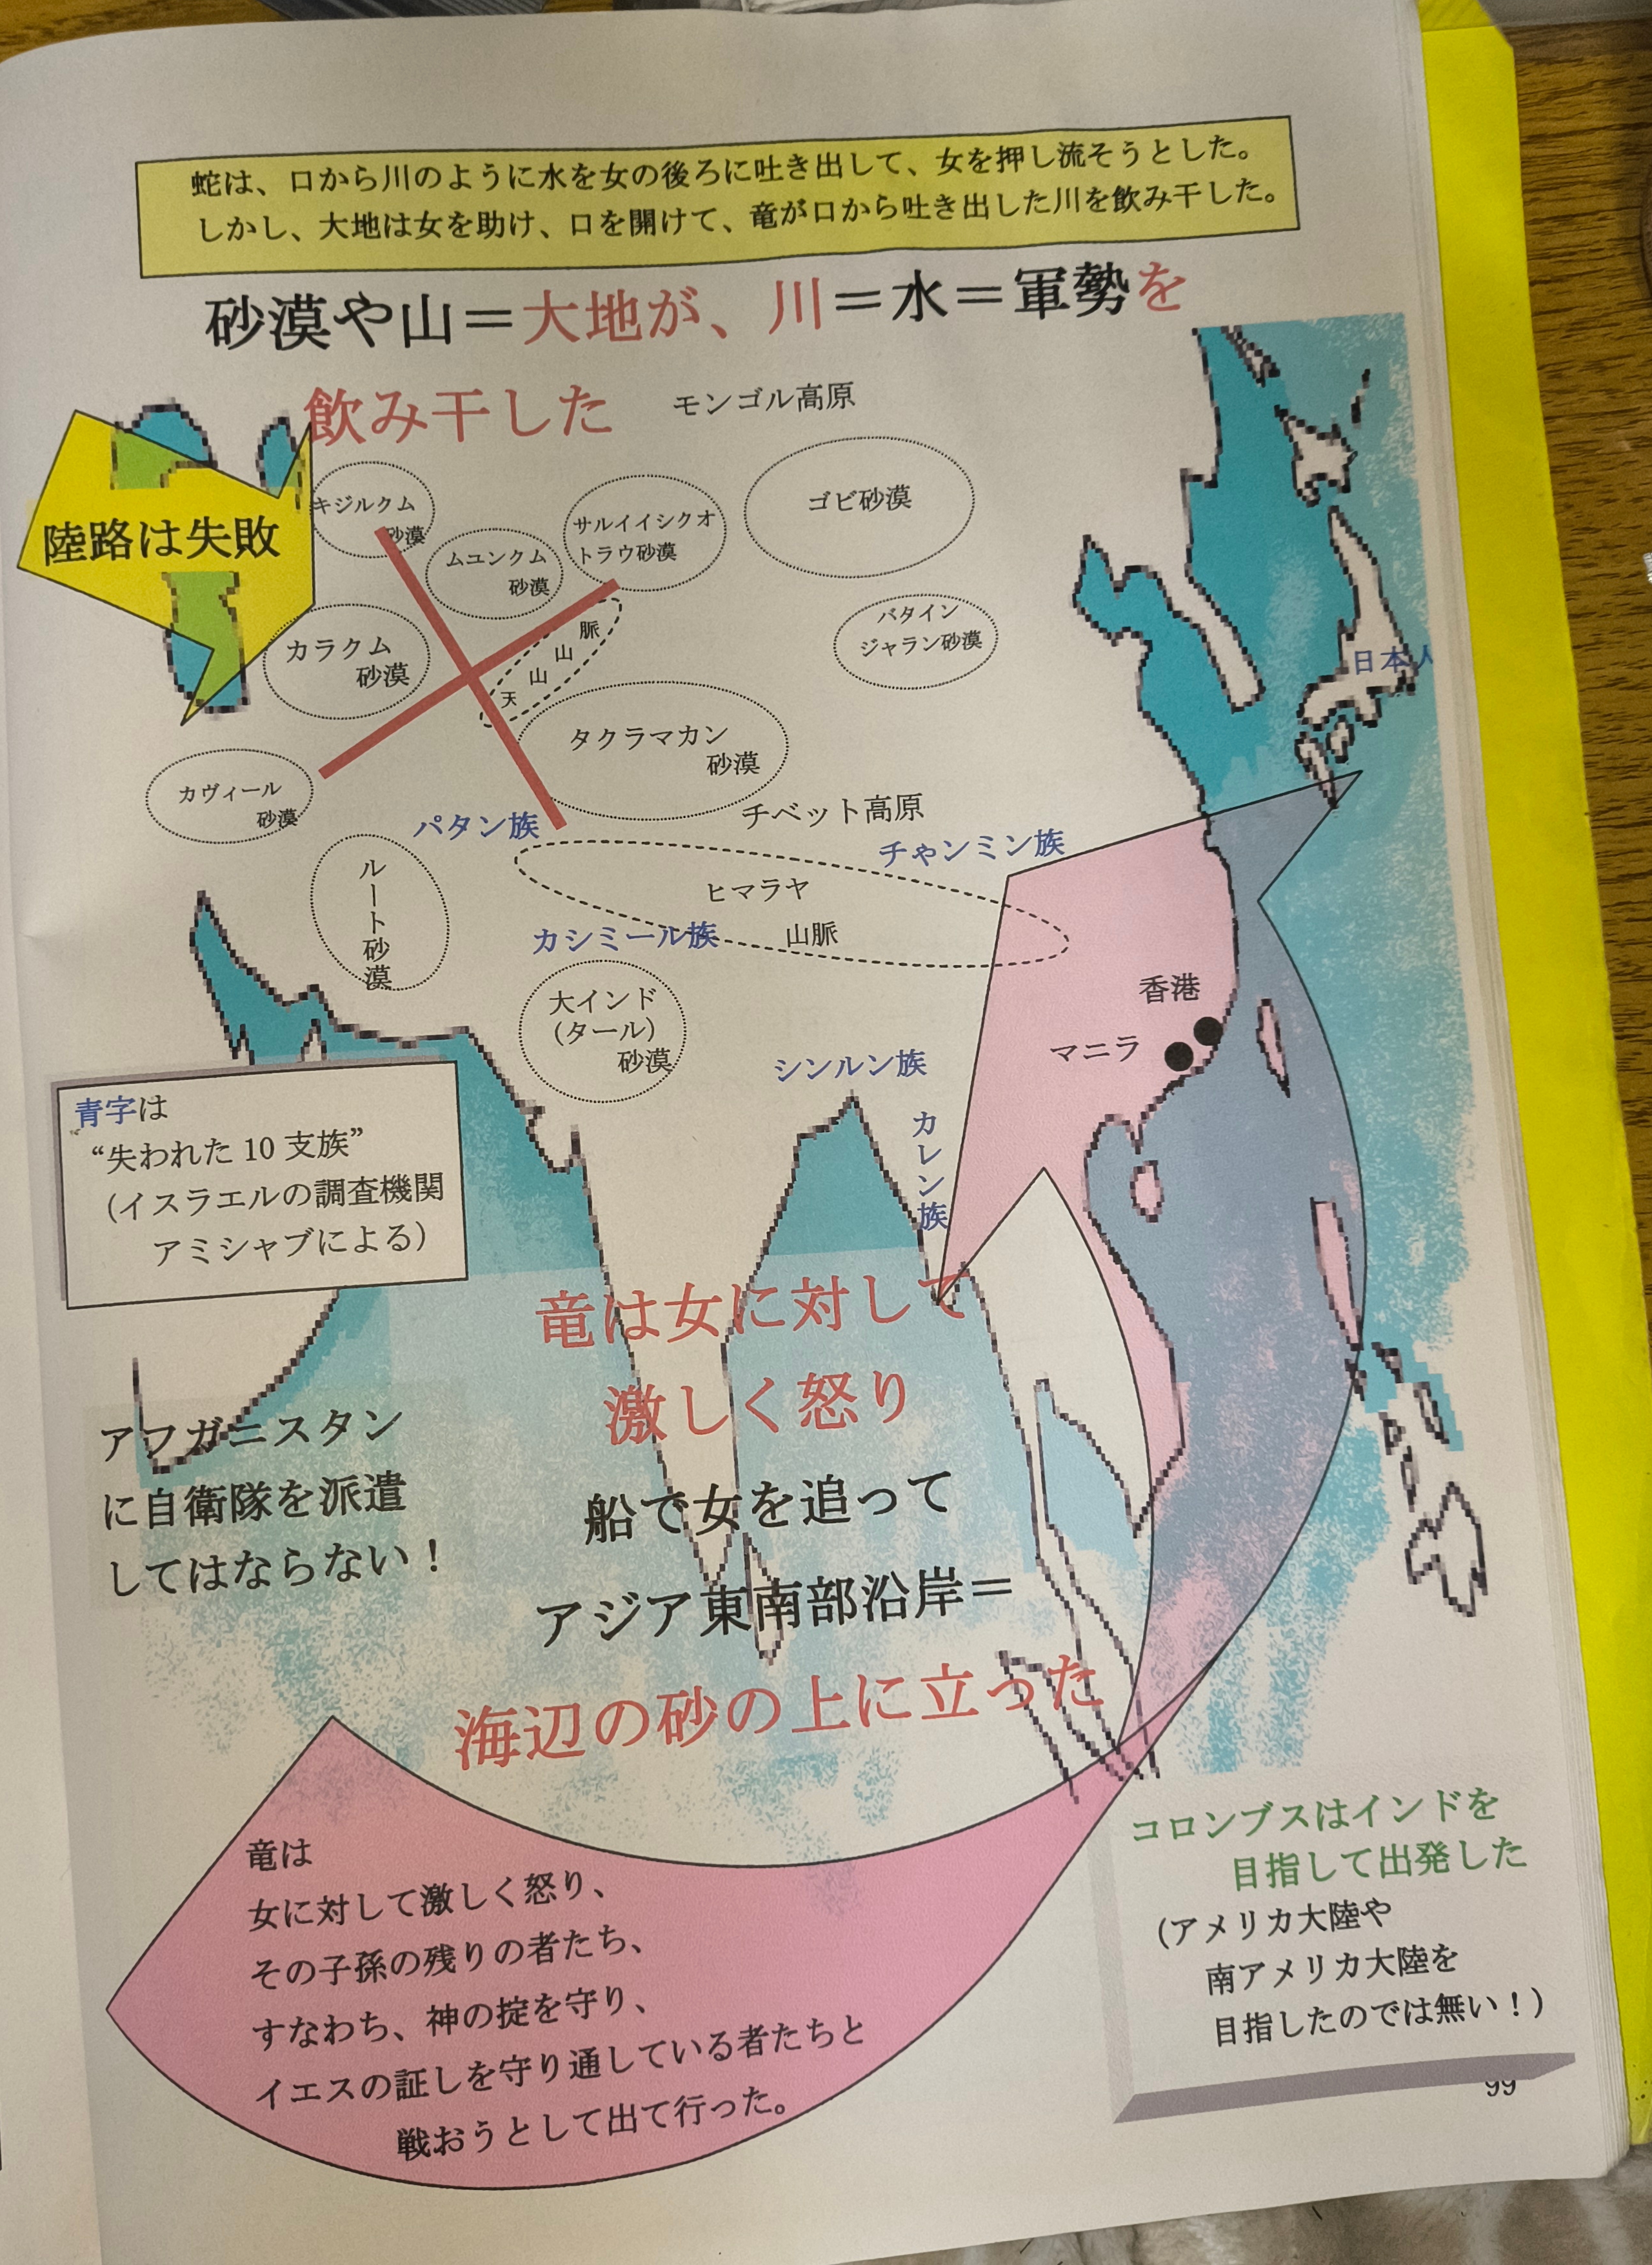 蛇は、口から川のように水を女の後ろに吐き出して、女を押し流そうとした。
しかし、大地は女を助け、口を開けて、竜が口から吐き出した川を飲み干した。
砂漠や山＝大地が、川＝水＝軍勢を
飲み干した
モンゴル高原
陸路は失敗
キジルクム
砂漠
ムユンクム
砂漠
サルイイシクオ
トラウ砂漠
ゴビ砂漠
バタイン
ジャラン砂漠
カラクム
砂漠
天山山脈
タクラマカン
砂漠
日本人
カヴィール
砂漠
パタン族
チベット高原
チャンミン族
ルート砂漠
ヒマラヤ
山脈
カシミール族
大インド
（タール）
砂漠
香港
マニラ
シンルン族
カレン族
青字は
“失われた 10 支族”
（イスラエルの調査機関
アミシャブによる）
竜は女に対して
激しく怒り
船で女を追って
アジア東南部沿岸＝
海辺の砂の上に立った
アフガニスタン
に自衛隊を派遣
してはならない！
竜は
女に対して激しく怒り、
その子孫の残りの者たち、
すなわち、神の掟を守り、
イエスの証しを守り通している者たちと
戦おうとして出て行った。
コロンブスはインドを
目指して出発した
（アメリカ大陸や
南アメリカ大陸を
目指したのでは無い！）
99